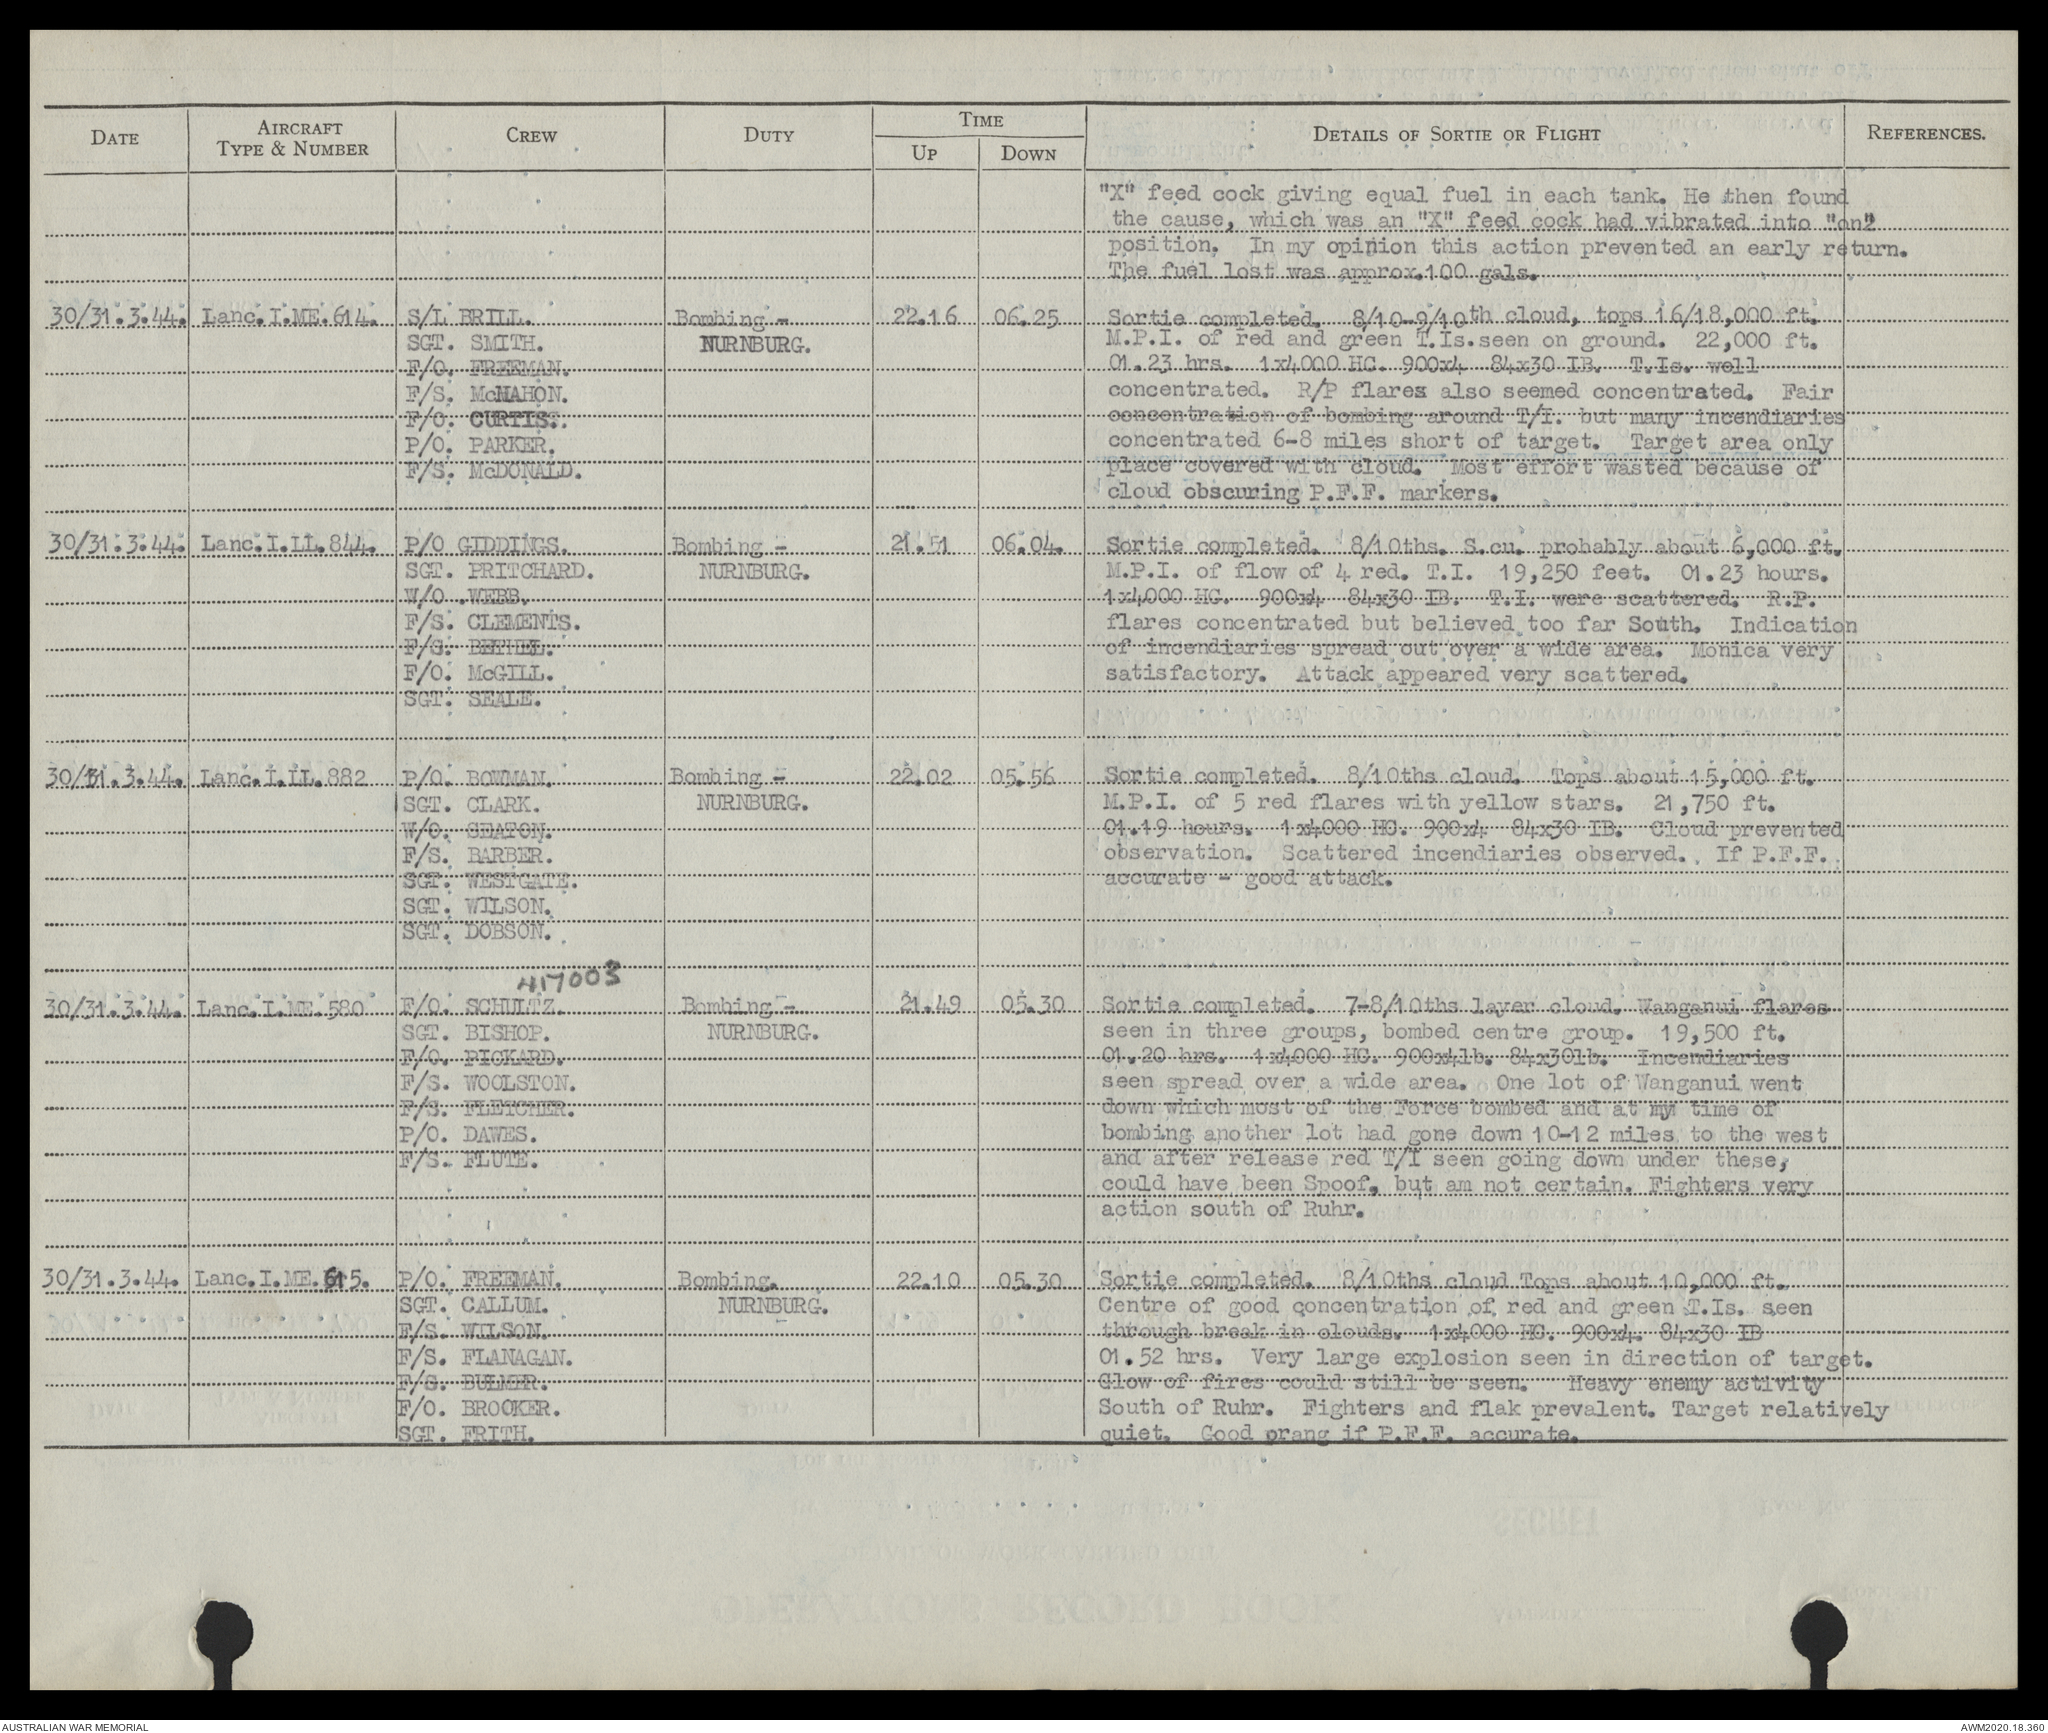 DATE AIRCRAFT TYPE & NUMBER CREW DUTY TIME UP DOWN DETAILS OF SORTIE OR FLIGHT REFERENCES.
"X" feed cock giving equal fuel in each tank. He then found
the cause, which was an "X" feed cock had vibrated into "on"
position. In my opinion this action prevented an early return.
The fuel lost was approx.100 gals.
30/31.3.44. Lanc.I.ME.614. S/L BRILL. Bombing - 22.16 06.25 Sortie completed. 8/10-9/10th cloud, tops 16/18,000 ft.
SGT. SMITH. NURNBURG. M.P.I. of red and green T.Is.seen on ground. 22,000 ft.
F/O. FREEMAN. 01.23 hrs. 1x4000 HC. 900x4 84x30 IB. T.Is. well
F/S. McMAHON. concentrated. R/P flares also seemed concentrated. Fair
F/O. CURTIS. concentration of bombing around T/I. but many incendiaries
P/O. PARKER. concentrated 6-8 miles short of target. Target area only
F/S. McDONALD. place covered with cloud. Most effort wasted because of
cloud obscuring P.F.F. markers.
30/31.3.44. Lanc.I.LL.844. P/O GIDDINGS. Bombing - 21.51 06.04. Sortie completed. 8/10ths. S.cu. probably about 6,000 ft.
SGT. PRITCHARD. NURNBURG. M.P.I. of flow of 4 red. T.I. 19,250 feet. 01.23 hours.
W/O .WEBB. 1x4000 HC. 900x4 84x30 IB. T.I. were scattered. R.P.
F/S. CLEMENTS. flares concentrated but believed too far South. Indication
F/S. BETHEL. of incendiaries spread out over a wide area. Monica very
F/O. McGILL. satisfactory. Attack appeared very scattered.
SGT. SEALE.
30/31.3.44. Lanc.I.LL.882 P/O. BOWMAN. Bombing - 22.02 05.56 Sortie completed. 8/10ths cloud. Tops about 15,000 ft.
SGT. CLARK. NURNBURG. M.P.I. of 5 red flares with yellow stars. 21,750 ft.
W/O. SEATON. 01.19 hours. 1x4000 HC. 900x4 84x30 IB. Cloud prevented
F/S. BARBER. observation. Scattered incendiaries observed. If P.F.F.
SGT. WESTGATE. accurate - good attack.
SGT. WILSON.
SGT. DOBSON.
417003
30/31.3.44. Lanc.I.ME.580 F/O. SCHULTZ. Bombing - 21.49 05.30 Sortie completed. 7-8/10ths layer cloud. Wanganui flares
SGT. BISHOP. NURNBURG. seen in three groups, bombed centre group. 19,500 ft.
F/O. PICKARD. 01.20 hrs. 1x4000 HC. 900x4lb. 84x30lb. Incendiaries
F/S. WOOLSTON. seen spread over a wide area. One lot of Wanganui went
F/S. FLETCHER. down which most of the Force bombed and at my time of
P/O. DAWES. bombing another lot had gone down 10-12 miles to the west
F/S. FLUTE. and after release red T/I seen going down under these,
could have been Spoof, but am not certain. Fighters very
action south of Ruhr.
30/31.3.44. Lanc.I.ME.615. P/O. FREEMAN. Bombing. 22.10 05.30 Sortie completed. 8/10ths cloud Tops about 10,000 ft.
SGT. CALLUM. NURNBURG. Centre of good concentration of red and green T.Is. seen
F/S. WILSON. through break in clouds. 1x4000 HC. 900x4. 84x30 IB
F/S. FLANAGAN. 01.52 hrs. Very large explosion seen in direction of target.
F/S. BULMER. Glow of fires could still be seen. Heavy enemy activity
F/O. BROOKER. South of Ruhr. Fighters and flak prevalent. Target relatively
SGT. FRITH. quiet. Good prang if P.F.F. accurate.
AUSTRALIAN WAR MEMORIAL AWM2020.18.360